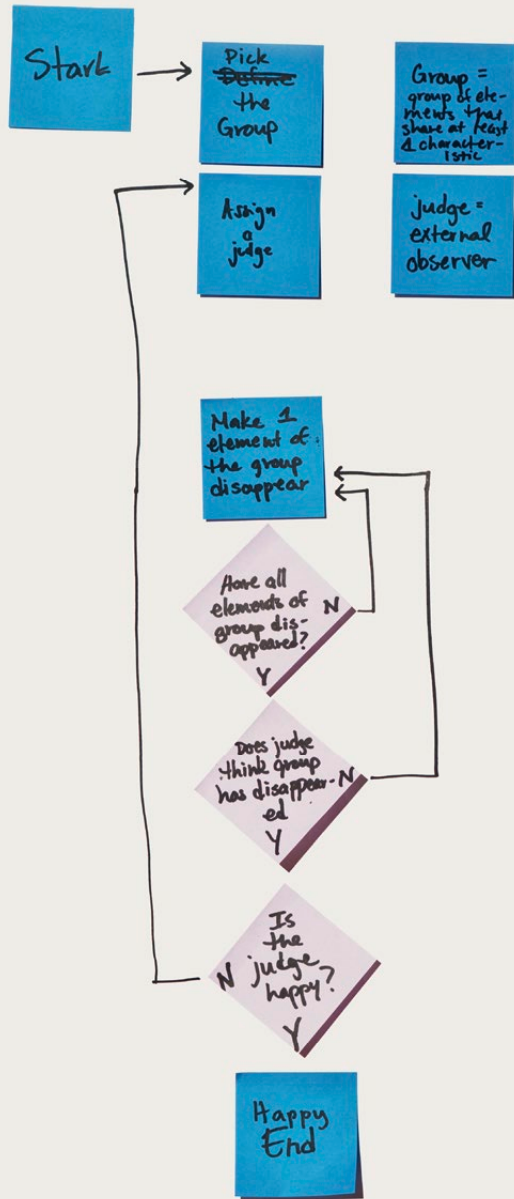 Start
Pick
Define
the
Group
Group =
group of ele-
ments that
share at least
1 character-
istic
Assign
a
judge
judge =
external
observer
Make 1
element of
the group
disappear
Have all
elements of N
group dis-
appeared?
Y
Does judge
think group
has disappear- N
ed
Y
Is
the
N judge
happy?
Y
Happy
End